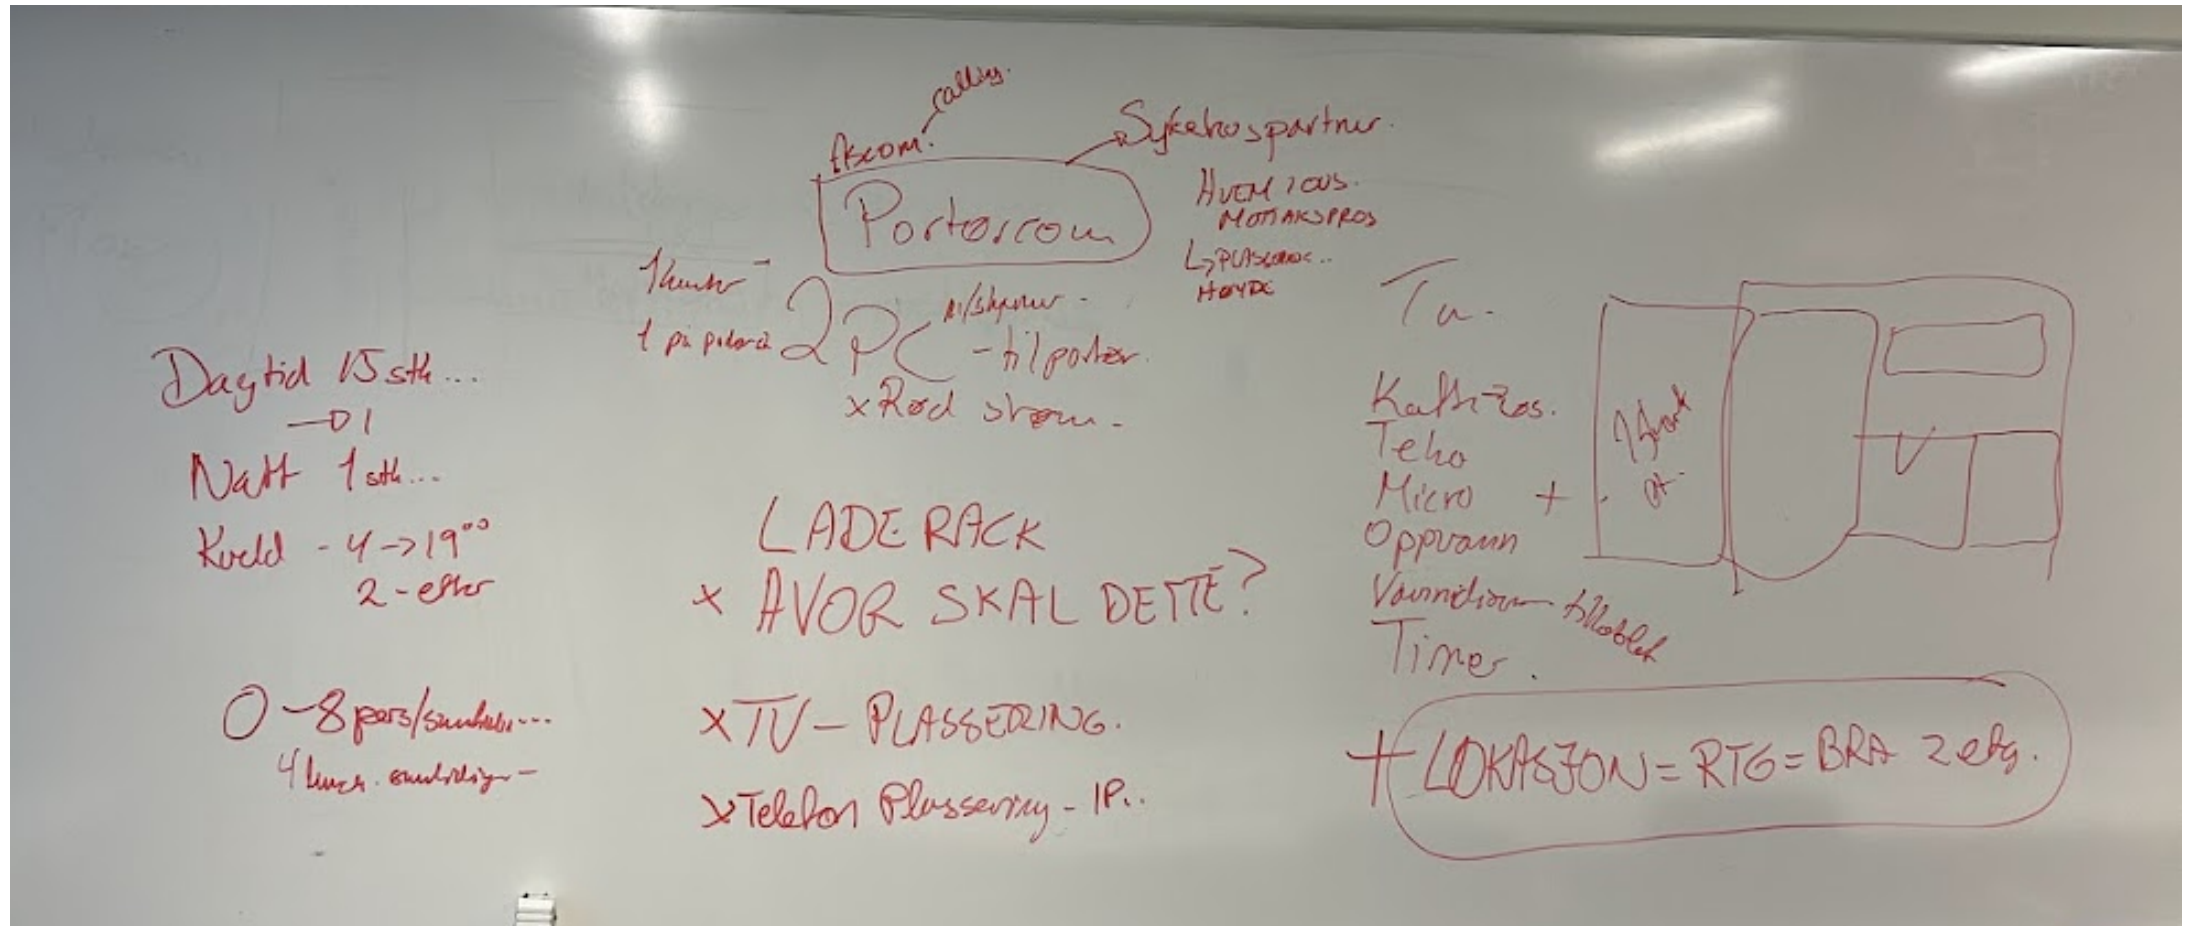 Dagtid 15 stk...
→ 1
Natt 1 stk...
Kveld - 4 → 19⁰⁰
2 - etter
0 - 8 pers/samtidi...
4 samtidig -
Ascom.
calling.
Sykehospartner.
Portørcom
HVEM
MOTTAKSPROS
↳ PLASSERING..
HØYDE
1 kontor -
1 på
2 PC m/skjermer -
- til portør.
x Rød strøm -
LADE RACK
x HVOR SKAL DETTE?
x TV - PLASSERING.
x Telefon Plassering - IP..
Tv.
Kaffe
Teko
Micro +
Oppvann
tilkoblet
Timer.
+ LOKASJON = RTG = BRA 2 etg.